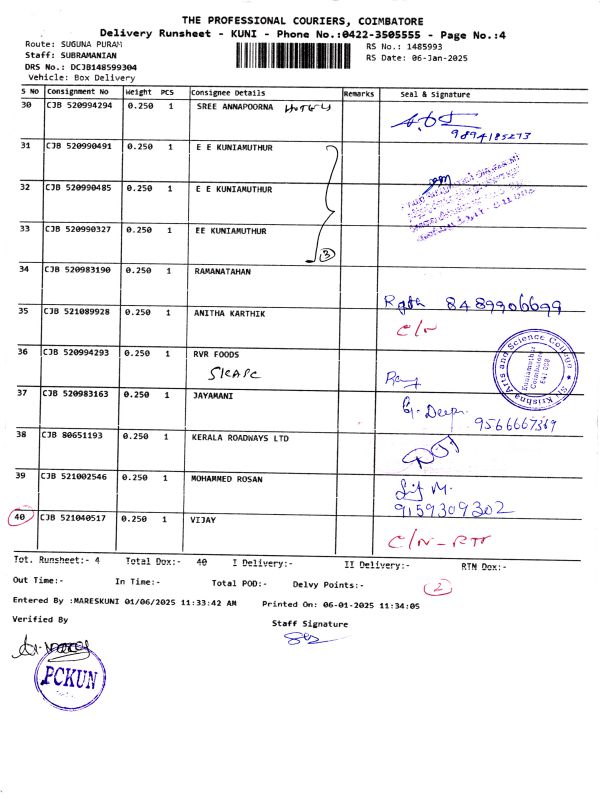 THE PROFESSIONAL COURIERS, COIMBATORE
Delivery Runsheet - KUNI - Phone No.:0422-3505555 - Page No.:4
Route: SUGUNA PURAM
RS No.: 1485993
Staff: SUBRAMANIAN
RS Date: 06-Jan-2025
DRS No.: DCJB148599304
Vehicle: Box Delivery
S No Consignment No Weight PCS Consignee Details Remarks Seal & Signature
30 CJB 520994294 0.250 1 SREE ANNAPOORNA
9894185273
31 CJB 520990491 0.250 1 E E KUNIAMUTHUR
32 CJB 520990485 0.250 1 E E KUNIAMUTHUR
33 CJB 520990327 0.250 1 EE KUNIAMUTHUR
3
34 CJB 520983190 0.250 1 RAMANATAHAN
8489906699
35 CJB 521089928 0.250 1 ANITHA KARTHIK
C/N
36 CJB 520994293 0.250 1 RVR FOODS
Sri Krishna Arts and Science College
Kuniamuthur
Coimbatore
641 008
37 CJB 520983163 0.250 1 JAYAMANI
G. Deepa
9566667369
38 CJB 80651193 0.250 1 KERALA ROADWAYS LTD
39 CJB 521002546 0.250 1 MOHAMMED ROSAN
9159309302
40 CJB 521040517 0.250 1 VIJAY
C/N-RTN
Tot. Runsheet:- 4 Total Dox:- 40 I Delivery:- II Delivery:- RTN Dox:-
Out Time:- In Time:- Total POD:- Delvy Points:-
2
Entered By :MARESKUNI 01/06/2025 11:33:42 AM Printed On: 06-01-2025 11:34:05
Verified By
Staff Signature
PCKUN